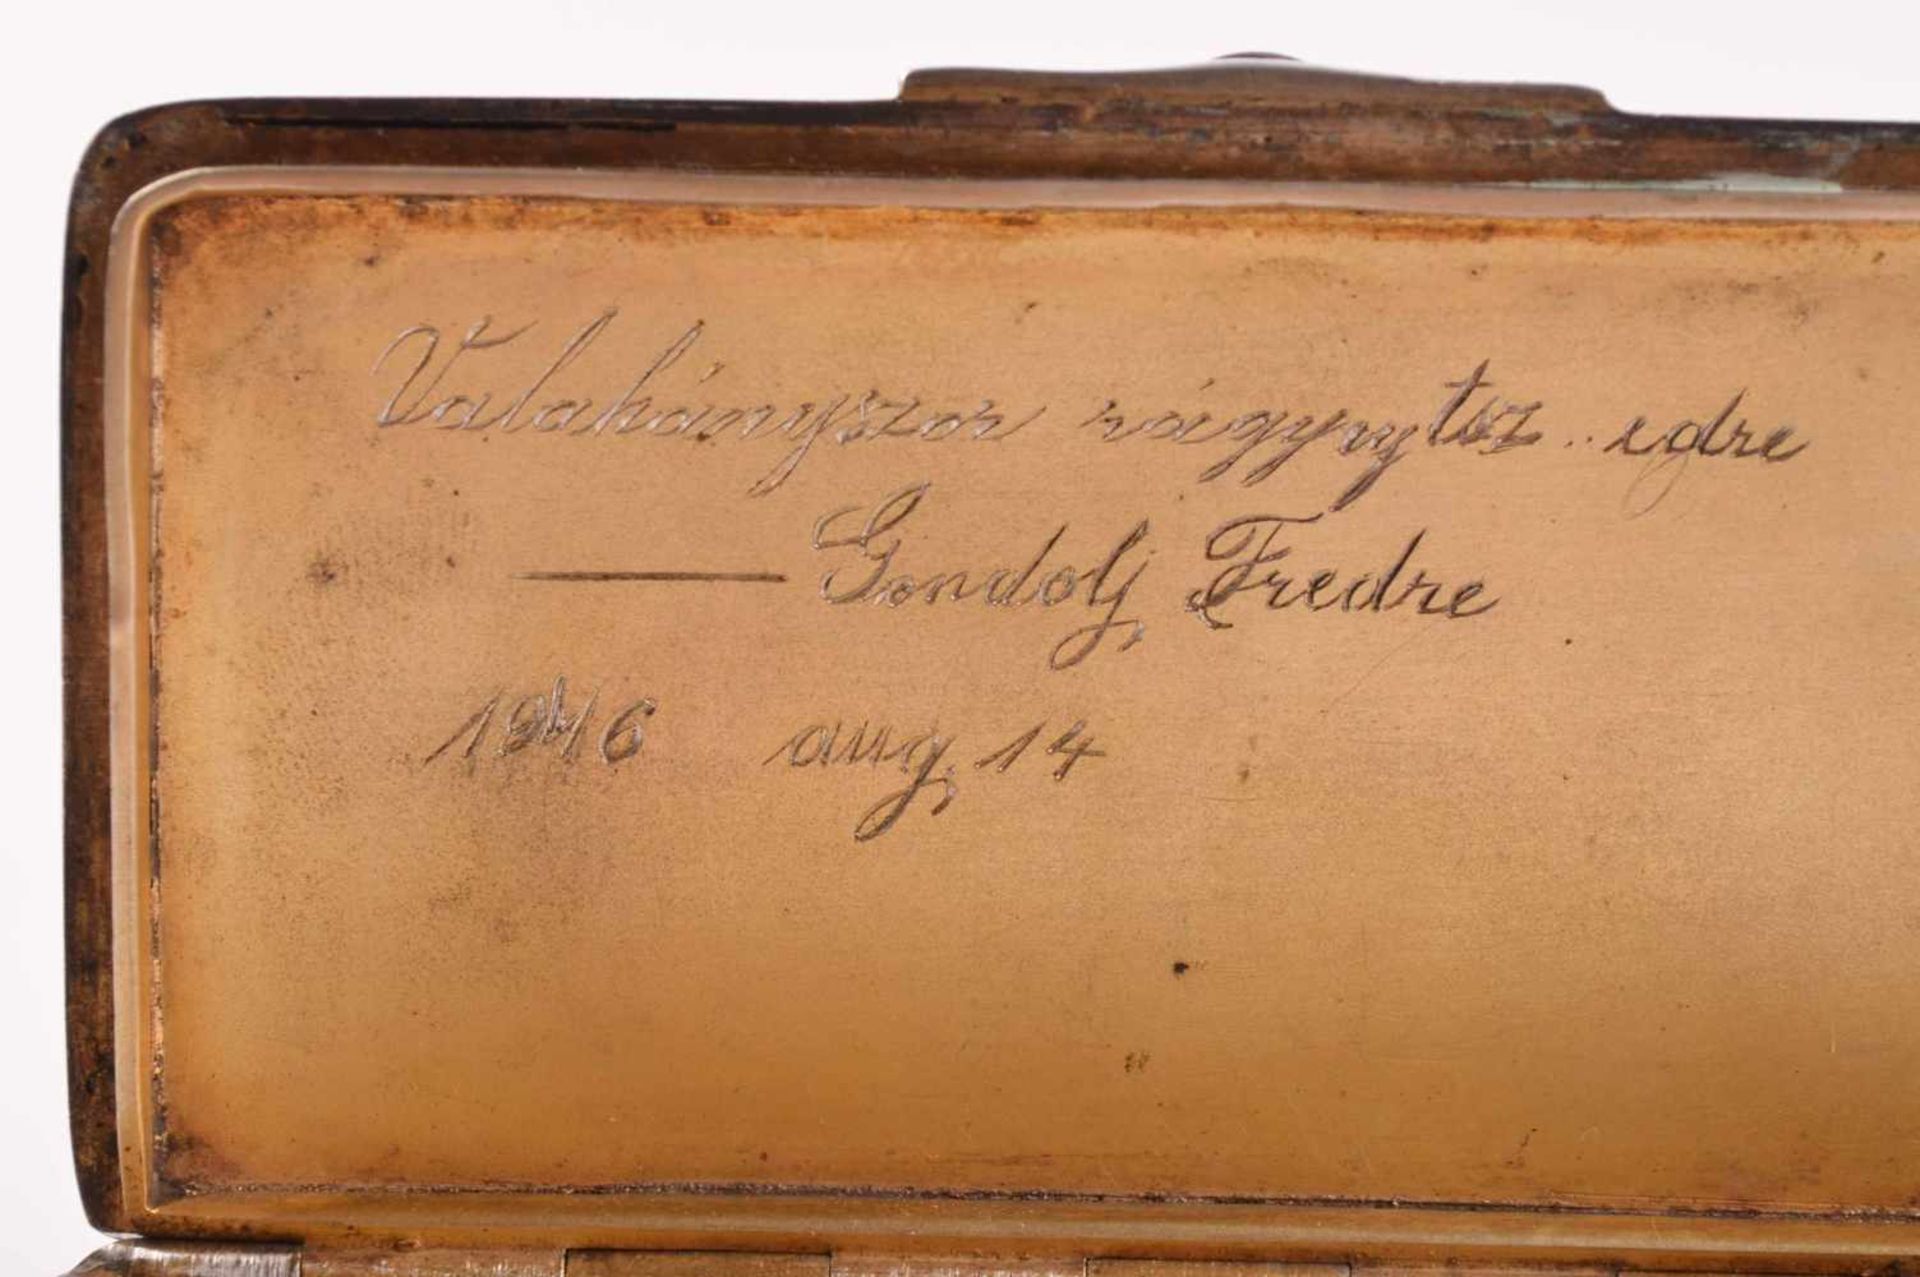 Valahányszor rágyujtsz .. egdre
— Gondolj Fredre
1946 aug. 14